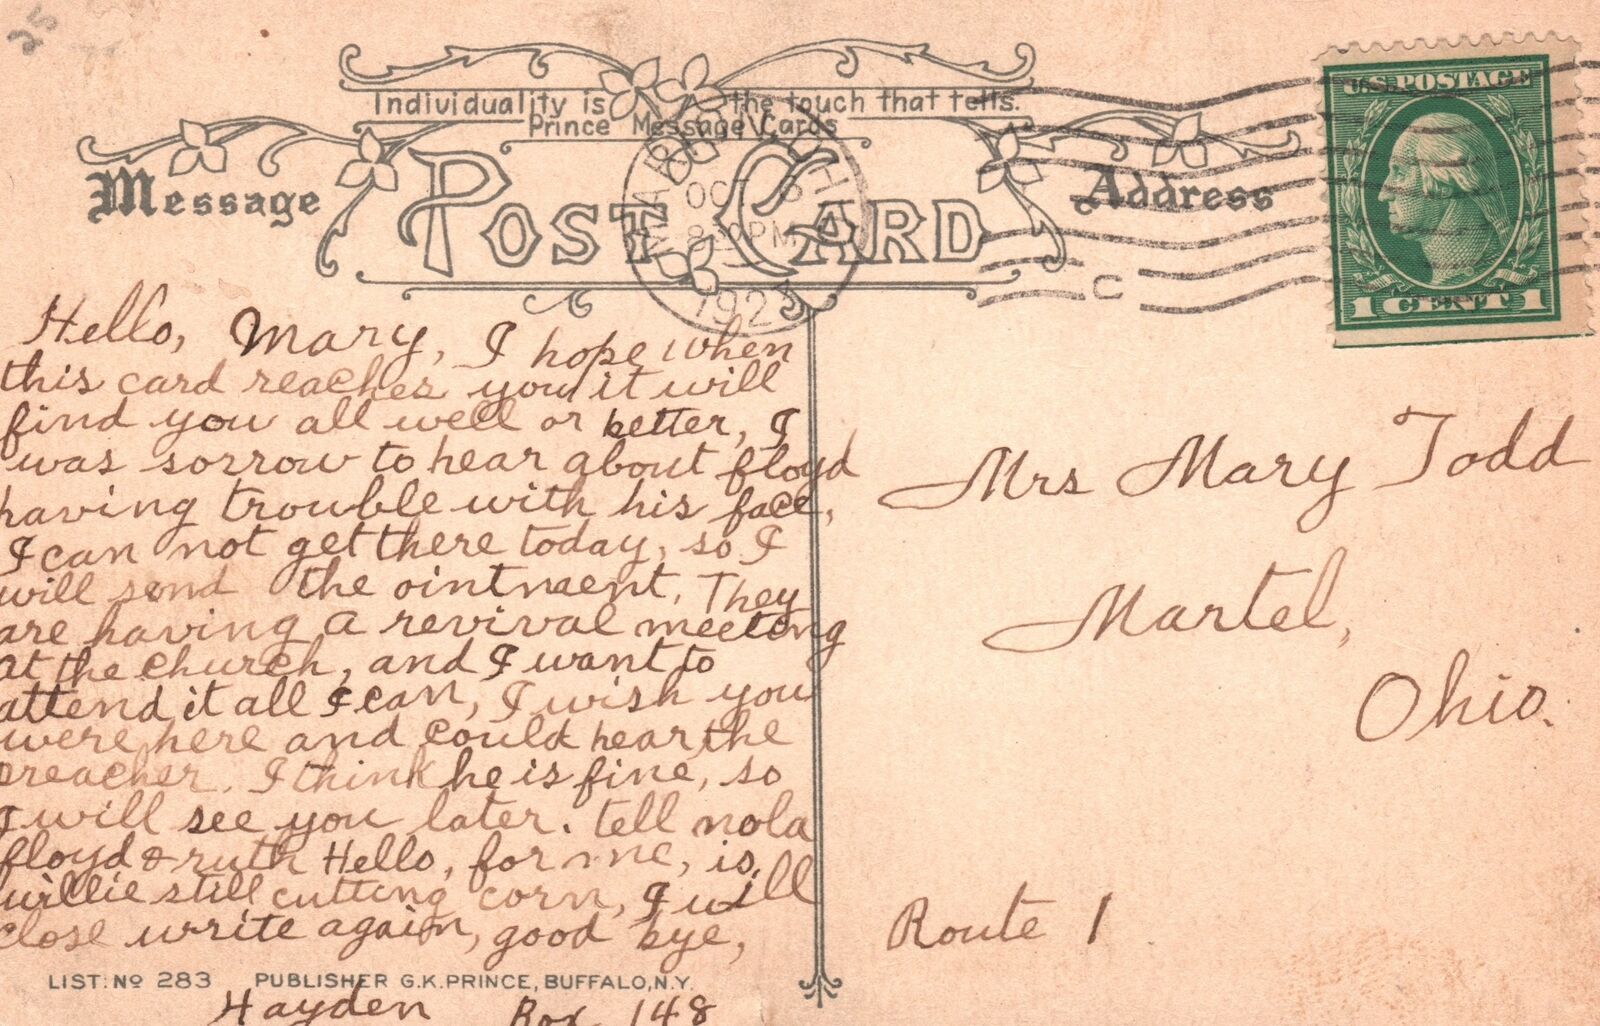 25
Individuality is the touch that tells.
Prince Message Cards
Message
POST CARD
Address
MARION OHIO
OCT
PM
192
C
U.S. POSTAGE
1 CENT 1
Hello, Mary, I hope when
this card reaches you it will
find you all well or better, I
was sorrow to hear about floyd
having trouble with his face,
I can not get there today, so I
will send the ointment. They
are having a revival meeting
at the church, and I want to
attend it all I can, I wish you
were here and could hear the
preacher. I think he is fine, so
I will see you later. tell nola
floyd & ruth Hello, for me, is
willie still cutting corn, I will
close write again, good bye,
LIST: No 283 PUBLISHER G.K. PRINCE, BUFFALO, N.Y.
Hayden Box 148
Mrs Mary Todd
Martel,
Ohio.
Route 1